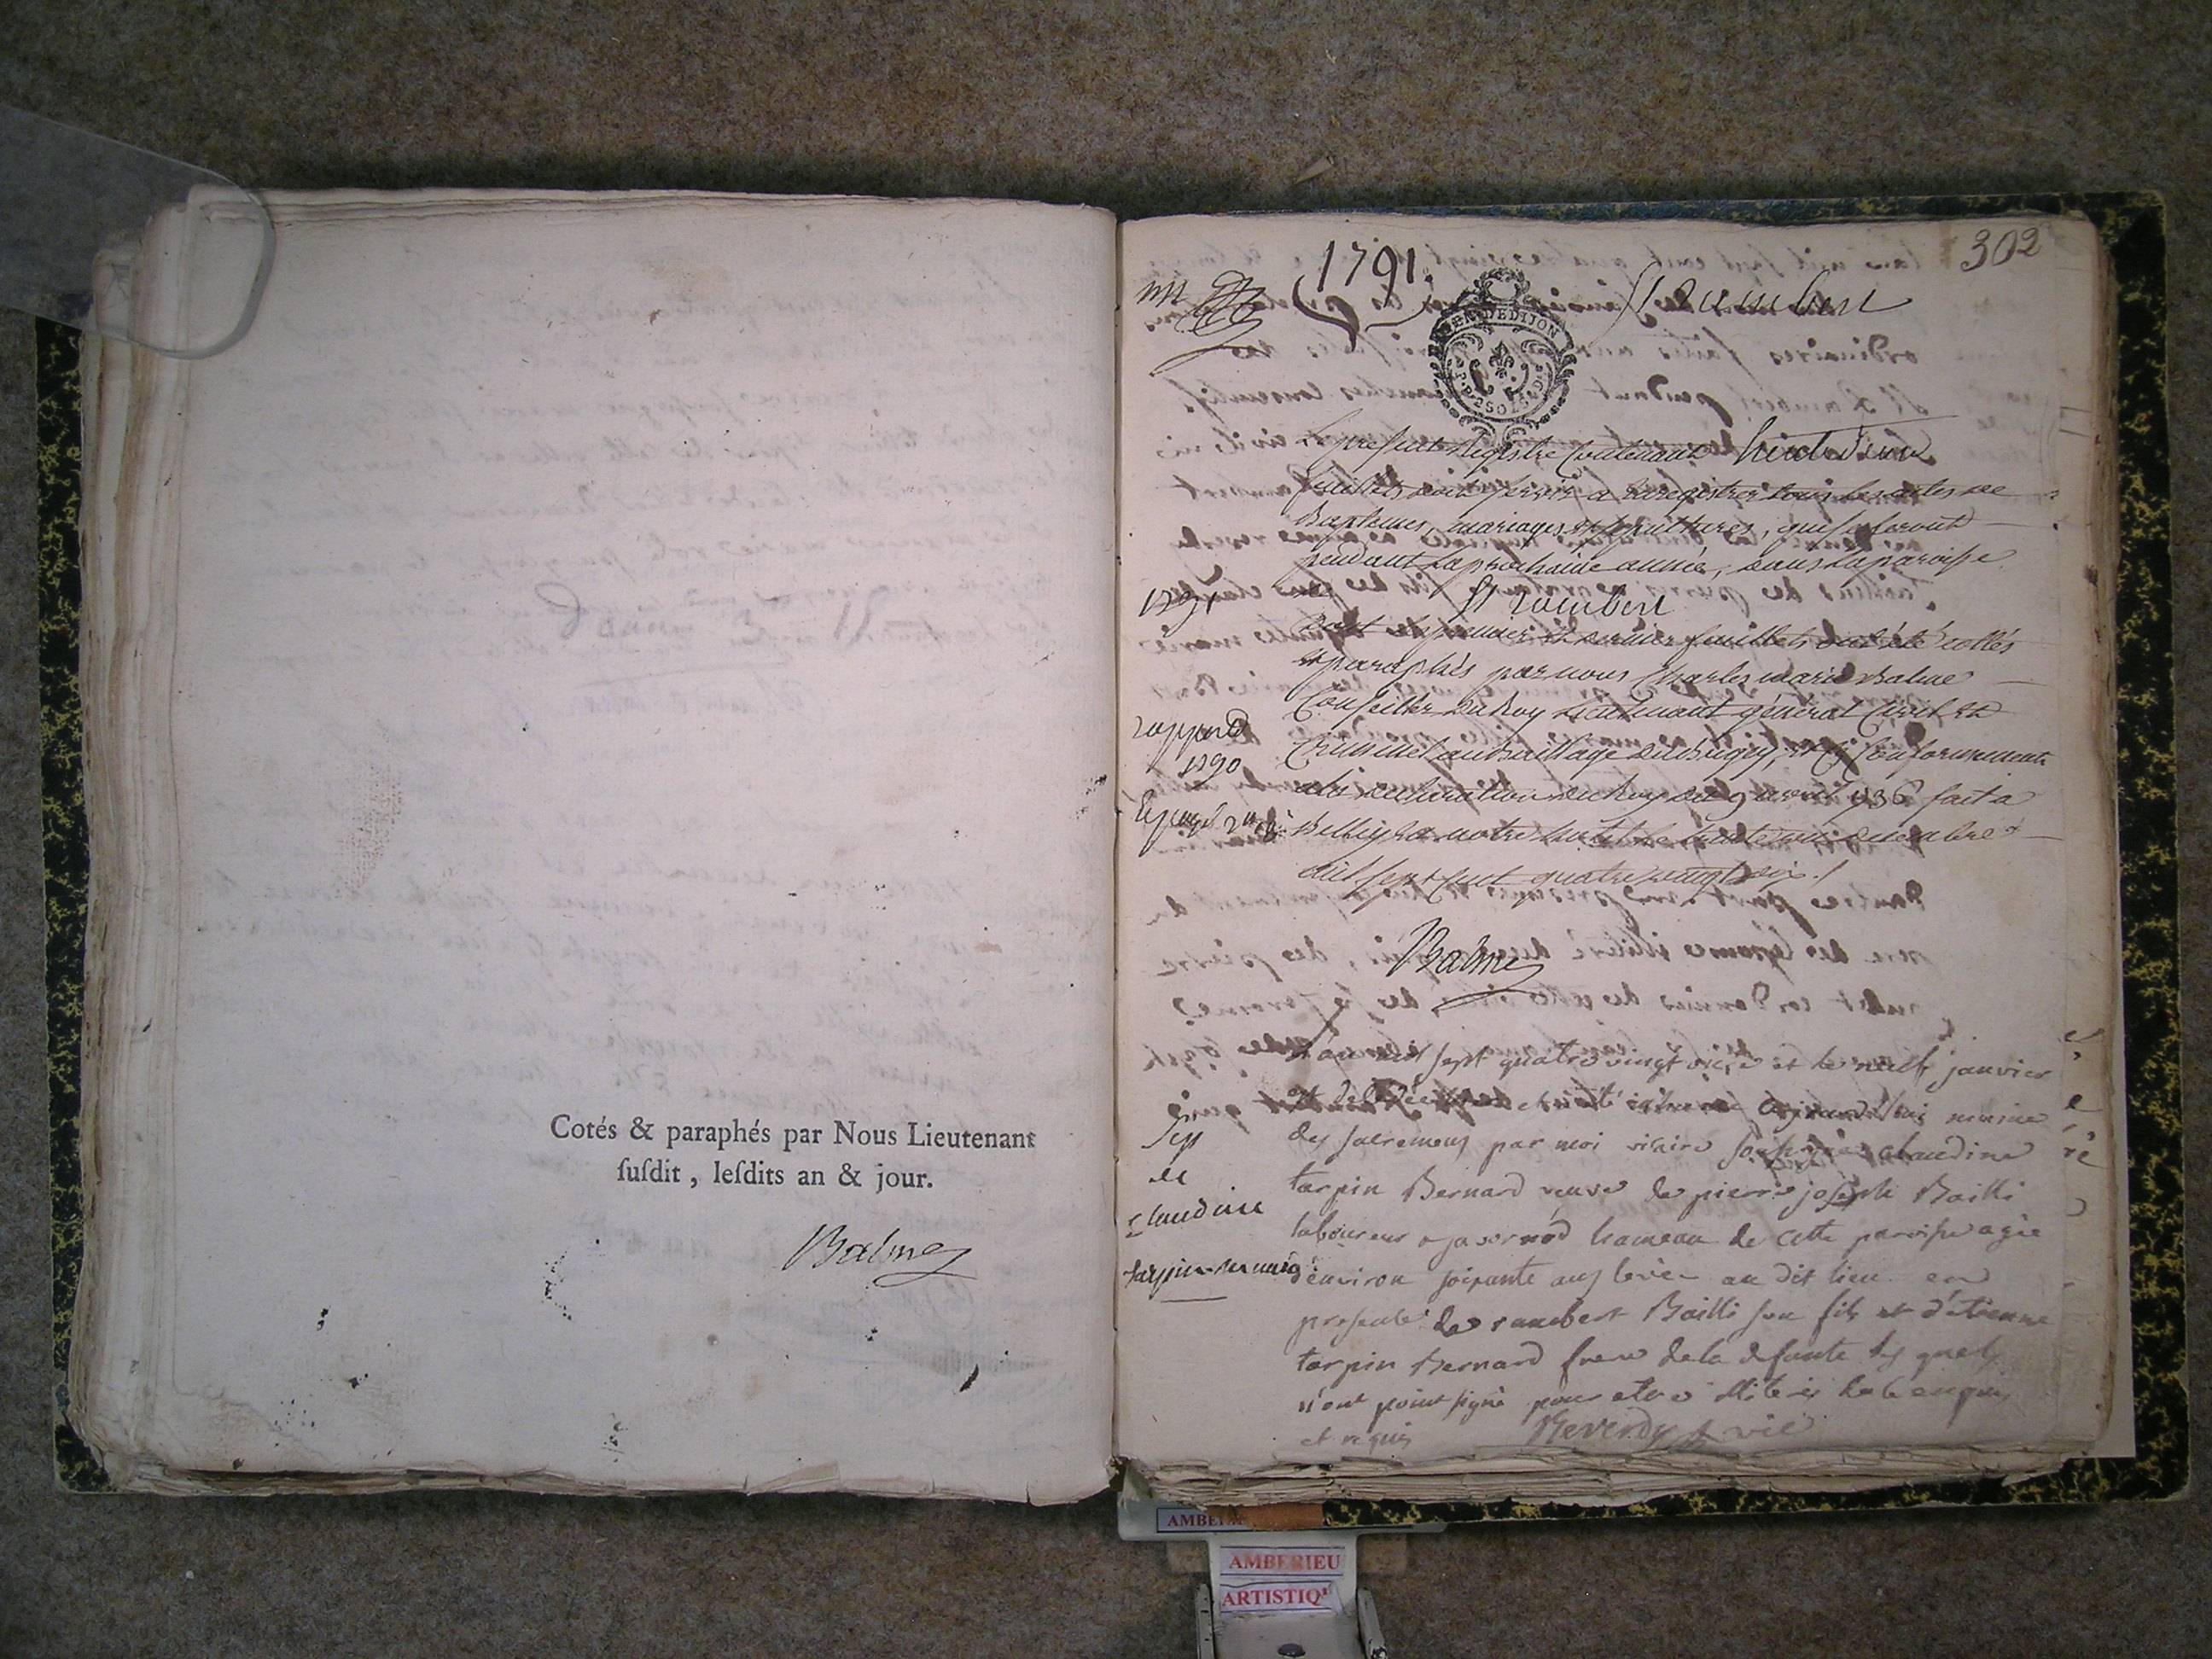 Cotés & paraphés par Nous Lieutenant
ſuſdit, leſdits an & jour.
Balme
302
1791.
St rambert
GEN DE DIJON
Le present Registre Contenant huit
feuillets doit servir a Enregistrer tous les actes de
Baptemes, mariages et sepultures, qui se feront
pendant la prochaine année, dans la paroisse
1791 St rambert
dont les premier et dernier feuillets ont été cottés
et paraphés par nous Charles marie Balme
Conseiller du Roy Lieutenant général Civil et
rapporté
1790
Criminel au Bailliage du Bugey, Conformement
a la declaration du Roy du 9 avril 1736 fait a
Belley en notre hotel le trente decembre
mil sept cent quatre vingt dix ./
Balme
L'an mil sept quatre vingt onze et le neuf janvier
est décédée et été inhumé munie
Sep
de
Claudine
tarpin bernard
des sacremens par moi vicaire soussigné claudine
tarpin Bernard veuve de pierre joseph Bailli
laboureur a javornod hameau de cette paroisse agée
d'environ soixante ans au dit lieu en
presence de rambert Bailli son fils et d'étienne
tarpin Bernard frere de la defunte les quels
n'ont point signé pour etre illiteres de ce enquis
et requis Reverdy vic
AMBERIEU
ARTISTIQ